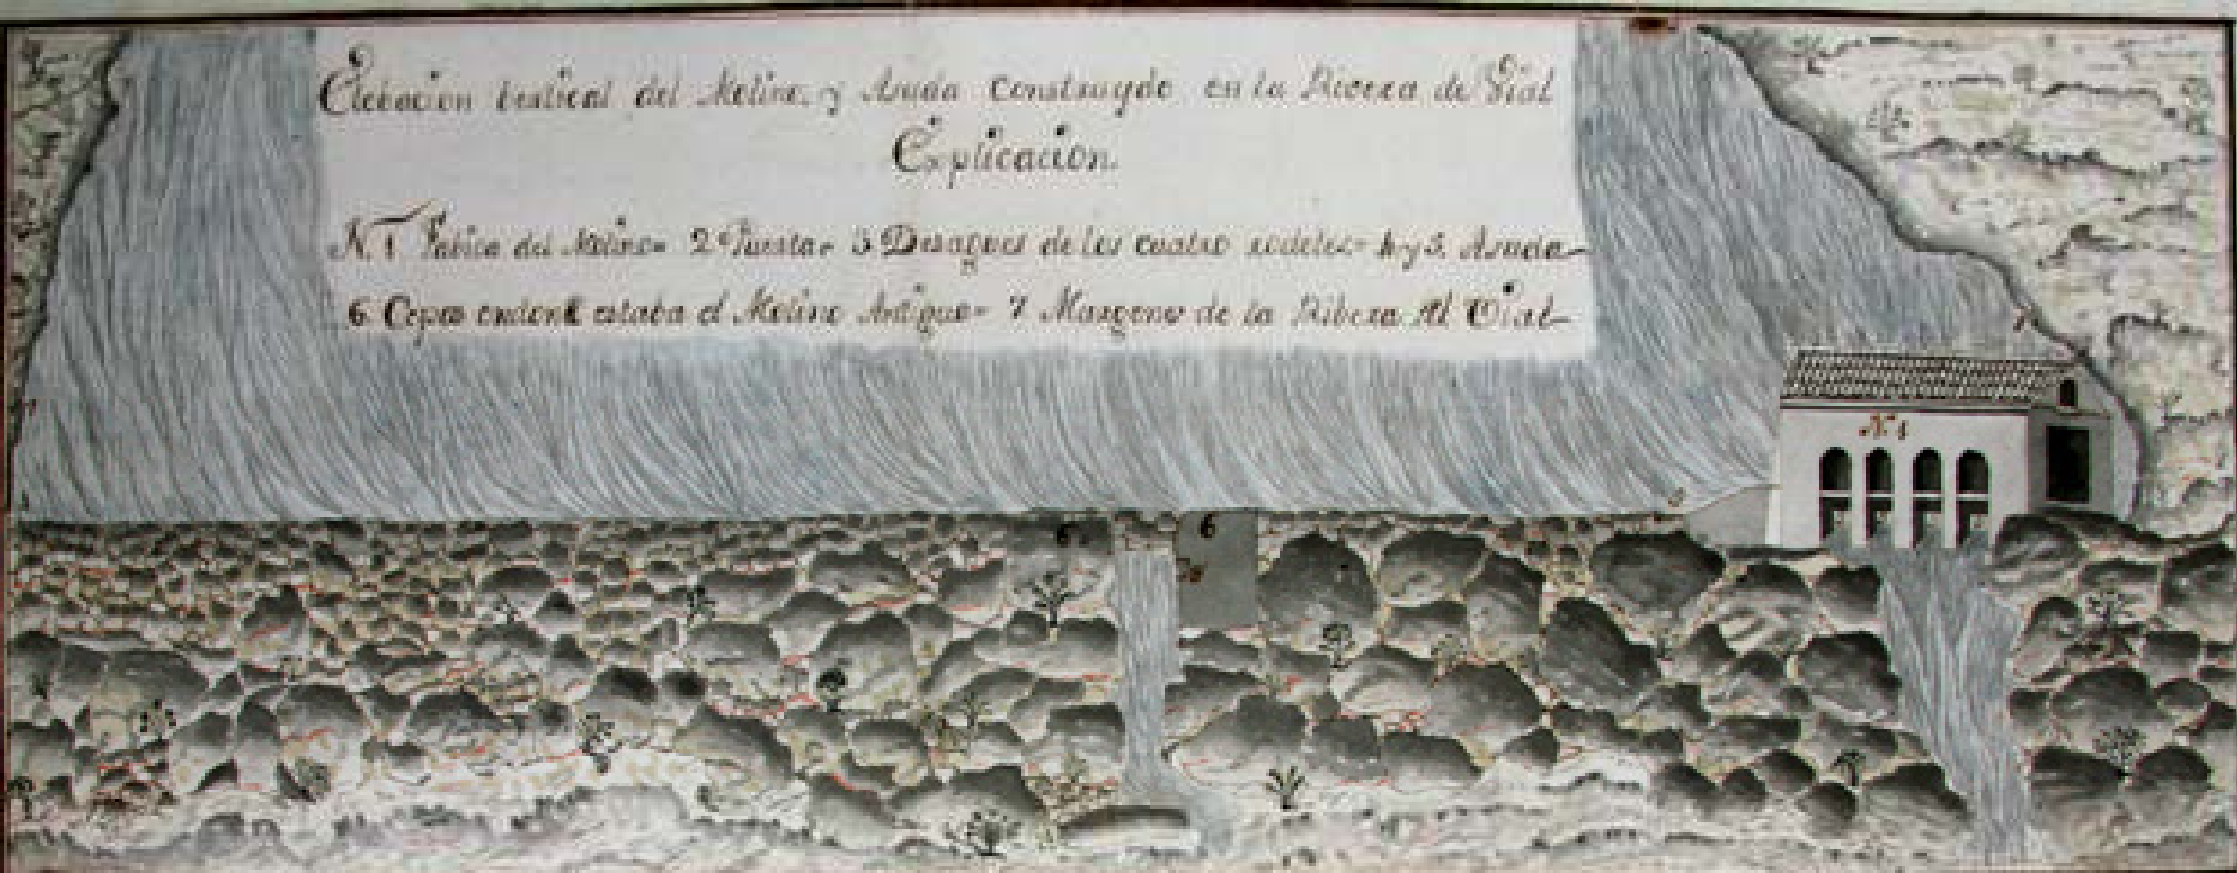 Elebacion bertical del Molino y Asuda Construydo en la Rivera de Vial
Explicacion.
N. 1 Fabica del Molino= 2 Puerta= 3 Desagues de los cuatro rodetes= 4 y 5. Asuda
6 Cepas endonde estaba el Molino Antiguo= 7 Margenes de la Ribera del Vial
7
N. 1
6
6